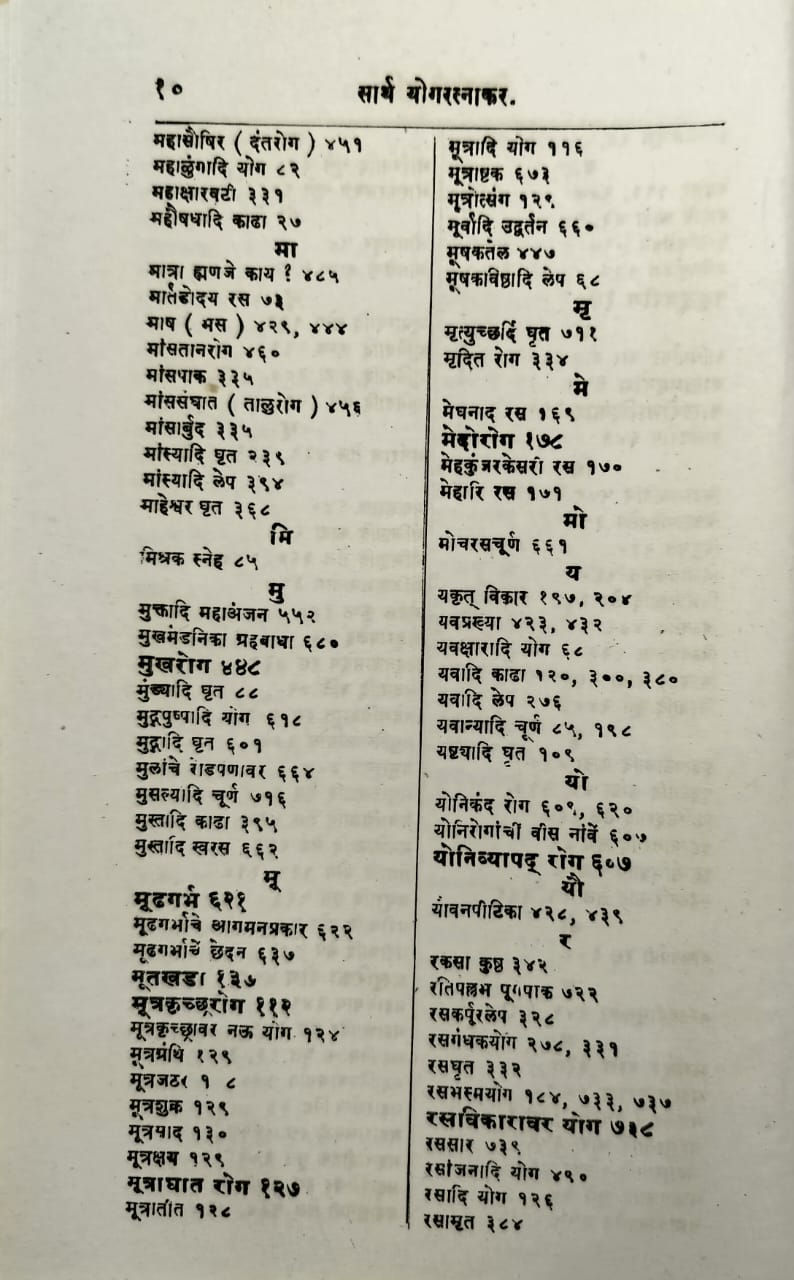 १०
सार्थ योगरत्नाकर.
महासौषिर ( दंतरोग ) ४५१
महाळुंगादि योग ८२
महाक्षारवटी ३३१
महौषधादि काढा २७
मा
मात्रा ह्मणजे काय ? ४८५
मार्तंडोदय रस ७३
माष ( मस ) ४२९, ४४४
मांसतानरोग ४६०
मांसपाक ३३५
मांससंघात ( ताळुरोग ) ४५६
मांसार्बुद ३३५
मांस्यादि घृत २३९
मांस्यादि लेप ३९४
माहेश्वर घृत ३६८
मि
मिश्रक स्नेह ८५
मु
मुक्तादि महाअंजन ५५२
मुखमंडनिका ग्रहबाधा ६८०
मुखरोग ४४८
मुंड्यादि घृत ८८
मुद्गपुष्पादि योग ६१८
मुद्गादि घृत ६०१
मुलांचे रोडपणावर ६६४
मुसल्यादि चूर्ण ७१६
मुस्तादि काढा ३९५
मुस्तादि स्वरस ६६२
मू
मूढगर्भ ६२१
मूढगर्भाचे आगमनप्रकार ६२२
मूढगर्भाचें छेदन ६३७
मूतखडा १३७
मूत्रकृच्छ्ररोग ११२
मूत्रकृच्छ्रावर नक्त योग १२४
मूत्रग्रंथि १२९
मूत्रजठर १ ८
मूत्रशुक्र १२९
मूत्रसाद १३०
मूत्रक्षय १२९
मूत्राघात रोग १२७
मूत्रातीत १२८
मूत्रादि योग ११६
मूत्राष्टक ६७३
मूत्रोत्संग १२९
मूर्वादि उद्वर्तन ६६०
मूषकतेल ४४७
मूषकविष्ठादि लेप ६८
मृ
मृत्युच्छर्दि घृत ७११
मृदित रोग ३३४
मे
मेघनाद रस १६९
मेदोरोग १७८
मेहकुंजरकेसरी रस १७०
मेहारि रस १७१
मो
मोचरसचूर्ण ६६१
य
यकृत् विकार १९७, २०४
यवप्रख्या ४२३, ४३२
यवक्षारादि योग ६८
यवादि काढा १२०, ३००, ३८०
यवादि लेप २७६
यवान्यादि चूर्ण ८५, १९८
यष्ट्यादि घृत १०९
यो
योनिकंद रोग ६०९, ६२०
योनिरोगांचीं वीस नांवें ६०७
योनिव्यापद् रोग ६०७
यौ
यौवनपीटिका ४२८, ४३९
र
रकसा कुष्ठ ३४२
रतिवल्लभ पूगपाक ७२२
रसकर्पूरलेप ३२८
रसगंधकयोग २७८, ३३१
रसघृत ३३२
रसभस्मयोग १८४, ७३३, ७३७
रसविकारावर योग ७३८
रससार ७३९
रसांजनादि योग ४९०
रसादि योग १२६
रसामृत ३८४